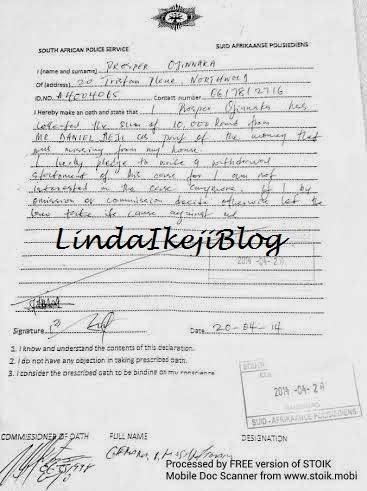 SOUTH AFRICAN POLICE SERVICE
SUID AFRIKAANSE POLISIEDIENS
I (name and surname) PROSPER OJINNAKA
Of (address) 20 Tristan NORTHWOLD
ID.NO. A4004065 Contact number
I Hereby make an oath and state that Prosper Ojinnaka has
the sum of 10,000 Rand from
MR DANIEL as part of the money that
was missing from my house.
I hereby pledge to write a withdrawal
statement of this case for I am not
interested in the case anymore. If I by
omission or commission decide otherwise let the
law take its cause against me
LindaIkejiBlog
2014 -04- 2
Signature
Date 20-04-14
1. I know and understand the contents of this declaration.
2. I do not have any objection in taking prescribed oath.
3. I consider the prescribed oath to be binding on my conscience
SOUTH
2014 -04- 2
SUID-AFRIKAANSE
COMMISSIONER OF OATH
FULL NAME
DESIGNATION
Processed by FREE version of STOIK
Mobile Doc Scanner from www.stoik.mobi